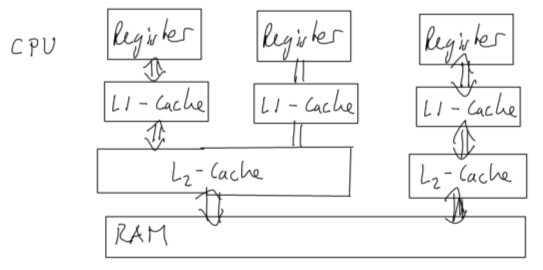 CPU
Register Register Register
L1-Cache L1-Cache L1-Cache
L2-Cache L2-Cache
RAM